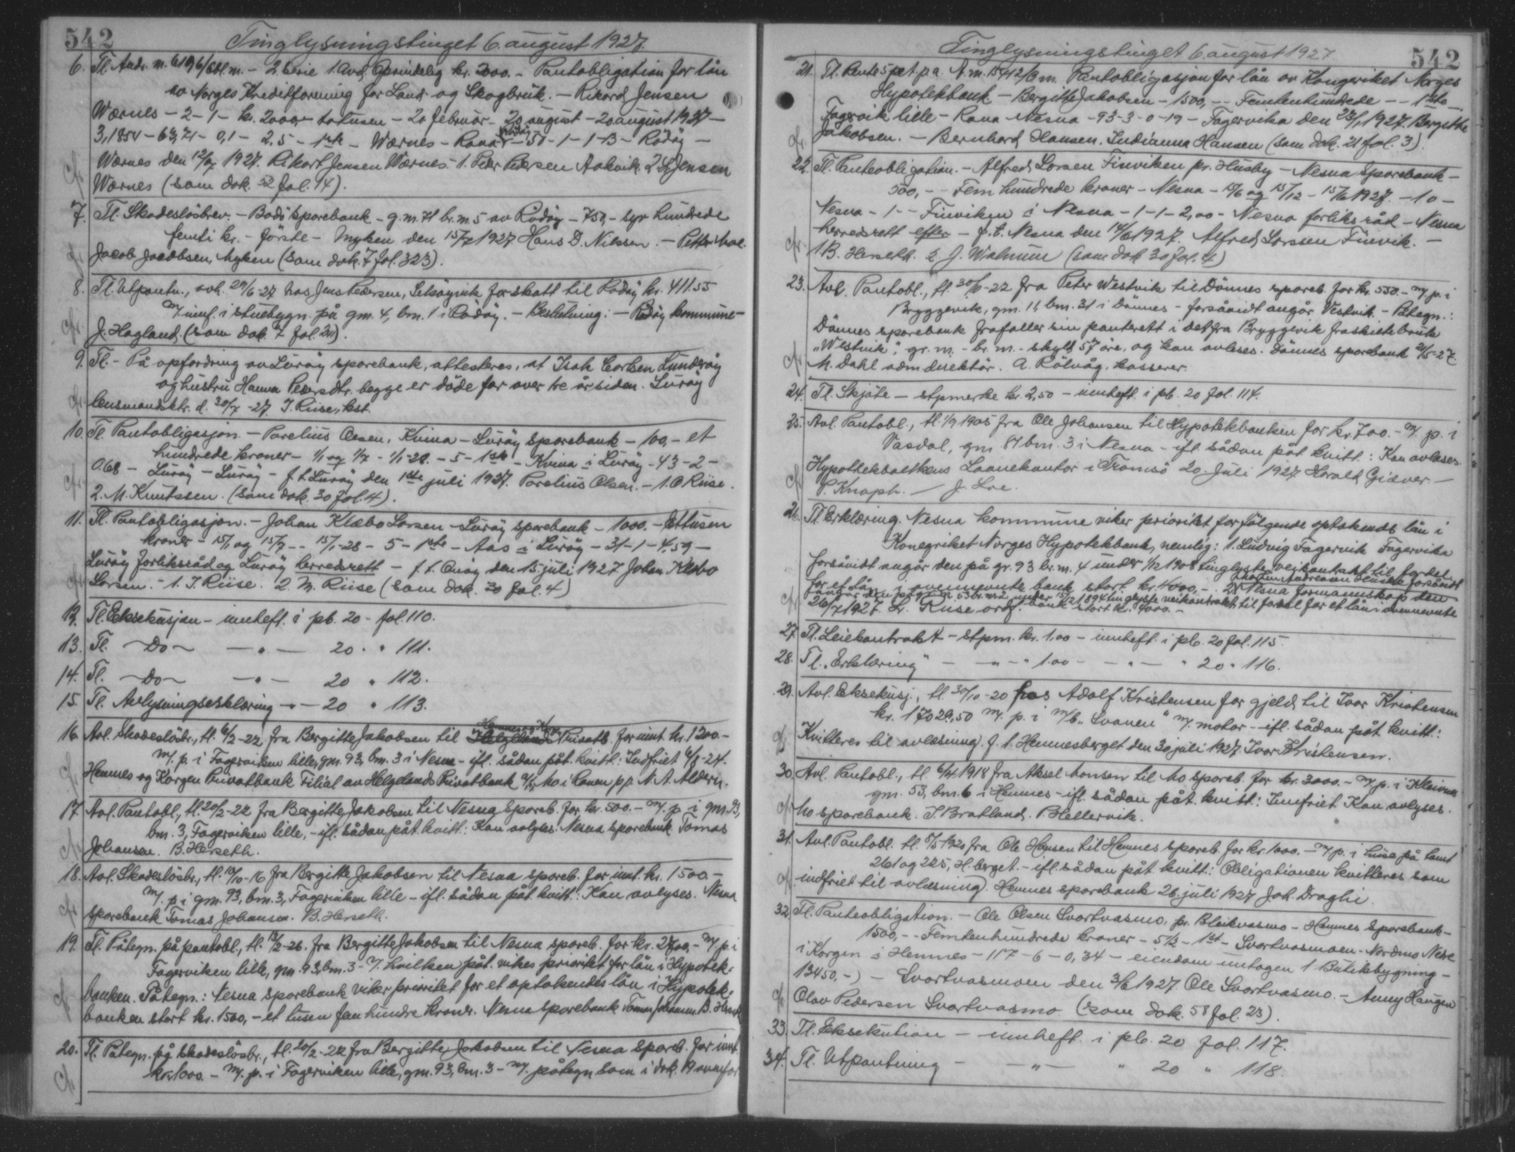 542
Tinglysningstinget 6. august 1927.
6. Tl. Andr. m. - 2 serie 1. Avd. Oprindelig kr. 2000.- Pantobligation for lån
av Norges Kreditforening for Land- og Skogbruk. - Rikard Jensen
Wærnes - 2 - 1 - kr. 2000,- totusen - 20 februar - 20 august - 20 august 1927 -
3,1854 - 63,21 - 0,1 - 2,5 - 1ste - Wærnes - Rödöy - 50 - 1 - 1 - 13 - Rödöy -
Wærnes den 12/7 1927. Rikard Jensen Wærnes - 1. Peder Pedersen Aakvik 2. Jensen
Wærnes (som dok. 52 fol. 14).
7. Tl. Skadeslösbrev. - Bodö sparebank - g.m. 71 br.m 5 av Rödöy - 750,- syv hundrede
femti kr. - förste - Myken den 15/7 1927 Hans D. Nilssen. -
Jacob Jacobsen, Myken (som dok. 7 fol. 323).
8. Tl. Utpantn., avh. 29/6-27 hos Jens Pedersen, Selsöyvik for skatt til Rödöy kr. 411.55
m/ innf. i stuebygn. på gm. 4, bm. 1 i Rödöy. - Beslutning: - Rödöy kommune -
J. Hagland (som dok. 7 fol. 20).
9. Tl. - På opfordring av Luröy sparebank, attesteres, at Isak Carlsen Lunderöy
og hustru Hanna Pedersdtr. begge er döde for over tre år siden. Luröy
lensmandsktr. d. 30/7-27. J. Riise, kst.
10. Tl. Pantobligasjon - Parelius Olsen, Kvina - Luröy sparebank - 100,- et
hundrede kroner - 1/1 og 1/7 - 1/1-28 - 5 - 1ste - Kvina i Luröy - 43 - 2 -
0,68 - Luröy - Luröy - f.t. Luröy den 1ste juli 1927. Parelius Olsen. - 1. O Riise.
2. M. Knutssen. (som dok. 30 fol. 4).
11. Tl. Pantobligasjon. - Johan Klæbo Larsen - Luröy sparebank - 1000.- Ettusen
kroner - 15/1 og 15/7 - 15/1-28 - 5 - 1ste - Aas i Luröy - 31 - 1 - 4,59 -
Luröy forliksråd og Luröy herredsrett - f.t. Luröy den 15 juli 1927 Johan Klæbo
Larsen. - 1. J. Riise. 2 M. Riise (som dok. 30 fol. 4)
12. Tl. Eksekusjon - innheft. i pb. 20 - fol. 110.
13. Tl. - Do - - " - 20 " 111.
14. Tl. - Do - - " - 20 " 112.
15. Tl. Avlysningserklæring - " - 20 " 113.
16. Avl. Skadeslösbr., tl. 6/2-22 fra Bergitte Jakobsen til Privatb for innt. kr. 1200.-
m/. p. i Fagerviken lille, gm. 93, bm. 3 i Nesna - ifl. sådan påt. kvitt: Indfriet 6/5-24.
Hemnes og Korgen Privatbank Filial av Helgelands Privatbank
17. Avl. Pantobl, tl. 20/2-22 fra Bergitte Jakobsen til Nesna spareb. for kr. 500.- m/. p. i gm. 93,
bm. 3, Fagerviken lille, - ifl. sådan påt. kvitt: Kan avlyses. Nesna sparebank Tomas
Johansen. B. Herseth.
18. Avl. Skadeslösbr., tl. 10/10-16 fra Bergitte Jakobsen til Nesna spareb. for innt. kr. 1500 -
m/. p. i gm. 93, bm. 3, Fagerviken lille - ifl. sådan påt. kvitt: Kan avlyses. Nesna
sparebank Tomas Johansen. B. Herseth.
19. Tl. Påtegn. på pantobl., tl. -26. fra Bergitte Jakobsen til Nesna spareb. for kr. 2700,- m/ p. i
Fagerviken lille, gm. 93, bm. 3 - v. hvilken påt. vikes prioritet for lån i Hypotek-
banken. Påtegn.: Nesna sparebank viker prioritet for et optakendes lån i Hypotek-
banken stort kr. 1500,- et tusen fem hundre kroner. Nesna sparebank Tomas Johansen B. Herseth
20. Tl. Påtegn. på skadeslösbr., tl. 20/2-22 fra Bergitte Jakobsen til Nesna spareb. for innt.
kr. 1000.- m/. p. i Fagerviken lille, gm. 93, bm. 3 - m/. påtegn. som i dok. 19 ovenfor
542
Tinglysningstinget 6. august 1927
21. Tl. Pantobligasjon for lån av Kongeriket Norges
Hypotekbank - Bergitte Jakobsen - 1500,- - Femtenhundrede - - 1ste -
Fagervik lille - Rana Nesna - 93 - 3 - 0 - 19 - Fagervika den 23/7 1927. Bergitte
Jakobsen. - Bernhard Hansen. Indianna Hansen (som dok. 21 fol. 3).
22. Tl. Panteobligation. - Alfred Larsen Finviken pr. Husby - Nesna Sparebank -
500,- - Fem hundrede kroner - Nesna - 15/6 og 15/12 - 15/12 1927. - 10 -
Nesna - 1 - - Finviken i Nesna - 1 - 1 - 2,00 - Nesna forliksråd - Nesna
herredsrett efter - f.t. Nesna den 14/6 1927. Alfred Larsen Finvik. -
1 B. Herseth. 2 J. Walnum (som dok 30 fol. 4)
23. Avl. Pantobl., tl. 30/6-22 fra Peter Westvik til Dönnes spareb. for kr. 550.- m/. p. i
Bryggevik, gm. 11 bm. 31 i Dönnes - forsåvidt angår Vestvik - Påtegn.:
Dönnes sparebank frafaller sin panterett i det fra Bryggevik fraskilte bruk
"Westvik", gr. m. - br. m. - skyld 57 öre, og kan avleses. Dönnes sparebank 21/5-27.
M. Dahl adm. direktör. A. Rölvåg. kasserer.
24. Tl. Skjöte - stpmerke kr. 2,50 - innheft. i pb. 20 fol. 114.
25. Avl. Pantobl., tl. 1/7 1905 fra Ole Johansen til Hypotekbanken for kr. 700.- m/. p. i
Vasdal, gm. 81 bm. 3 i Nesna - ifl. sådan påt. kvitt: Kan avleses.
Hypotekbankens Laanekontor i Tromsö 20. juli 1927 Harald Giæver -
P. Knoph. - J. Lie.
26. Tl. Erklæring. Nesna kommune viker prioritet for fölgende optakende lån i
Kongeriket Norges Hypotekbank, nemlig: 1. Ludvig Fagervik Fagervika
forsåvidt angår den på gr. 93 br. m. 4 under 1/2 1908 tinglyste veikontrakt til fordel
for et lån i ovennevnte bank stort kr. 4000.-
Nesna formannskap den
26/7 1927 L. Riise ordf.
27. Tl. Leiekontrakt - stpm. kr. 1.00 - innheft i pb. 20 fol. 115.
28. Tl. "Erklæring" - " - " 1.00 - - " - " 20 " 116.
29. Avl. Eksekusj., tl. 30/10-20 hos Adolf Kristensen for gjeld til Ivar Kristensen
kr. 17028.50 m/. p. i m/b. "Svanen" m/ motor - ifl. sådan påt kvitt:
Kvitteres til avlæsning. f.t. Hemnesberget den 30 juli 1927 Ivar Kristensen.
30. Avl. Pantobl., tl. 6/4 1918 fra Aksel Monsen til Mo spareb. for kr. 3000.- m/ p. i Kleiva
gm. 53, bm. 6 i Hemnes - ifl. sådan påt. kvitt: Innfriet. Kan avlyses.
Mo sparebank. J. Bratland. P. Hellervik.
31. Avl. Pantobl. tl. 5/5 1920 fra Ole Hansen til Hemnes spareb. for kr. 1000.- m/ p. i huse på tomt
226 og 225, H. berget - ifl. sådan påt kvitt: Obligationen kvitteres som
indfriet til avlæsning. Hemnes sparebank 26. juli 1927 Joh. Dragli.
32. Tl. Panteobligation. - Ole Olsen Svortvasmo, pr. Bleikvasmo - Hemnes sparebank -
1500,- - Femtenhundrede kroner - 5½ - 1ste - Svortvasmoen - Nordmo Nedre
i Korgen i Hemnes - 117 - 6 - 0,34 - eiendom untagen 1 Butikbygning -
13450,-) - Svortvasmoen den 3/6 1927 Ole Svortvasmo. - Anny Haugen
Olav Pedersen Svortvasmo (som dok. 58 fol. 23).
33. Tl. Eksekution - innheft i pb. 20 fol. 117.
34. Tl. Utpantning - - " - " 20 " 118.